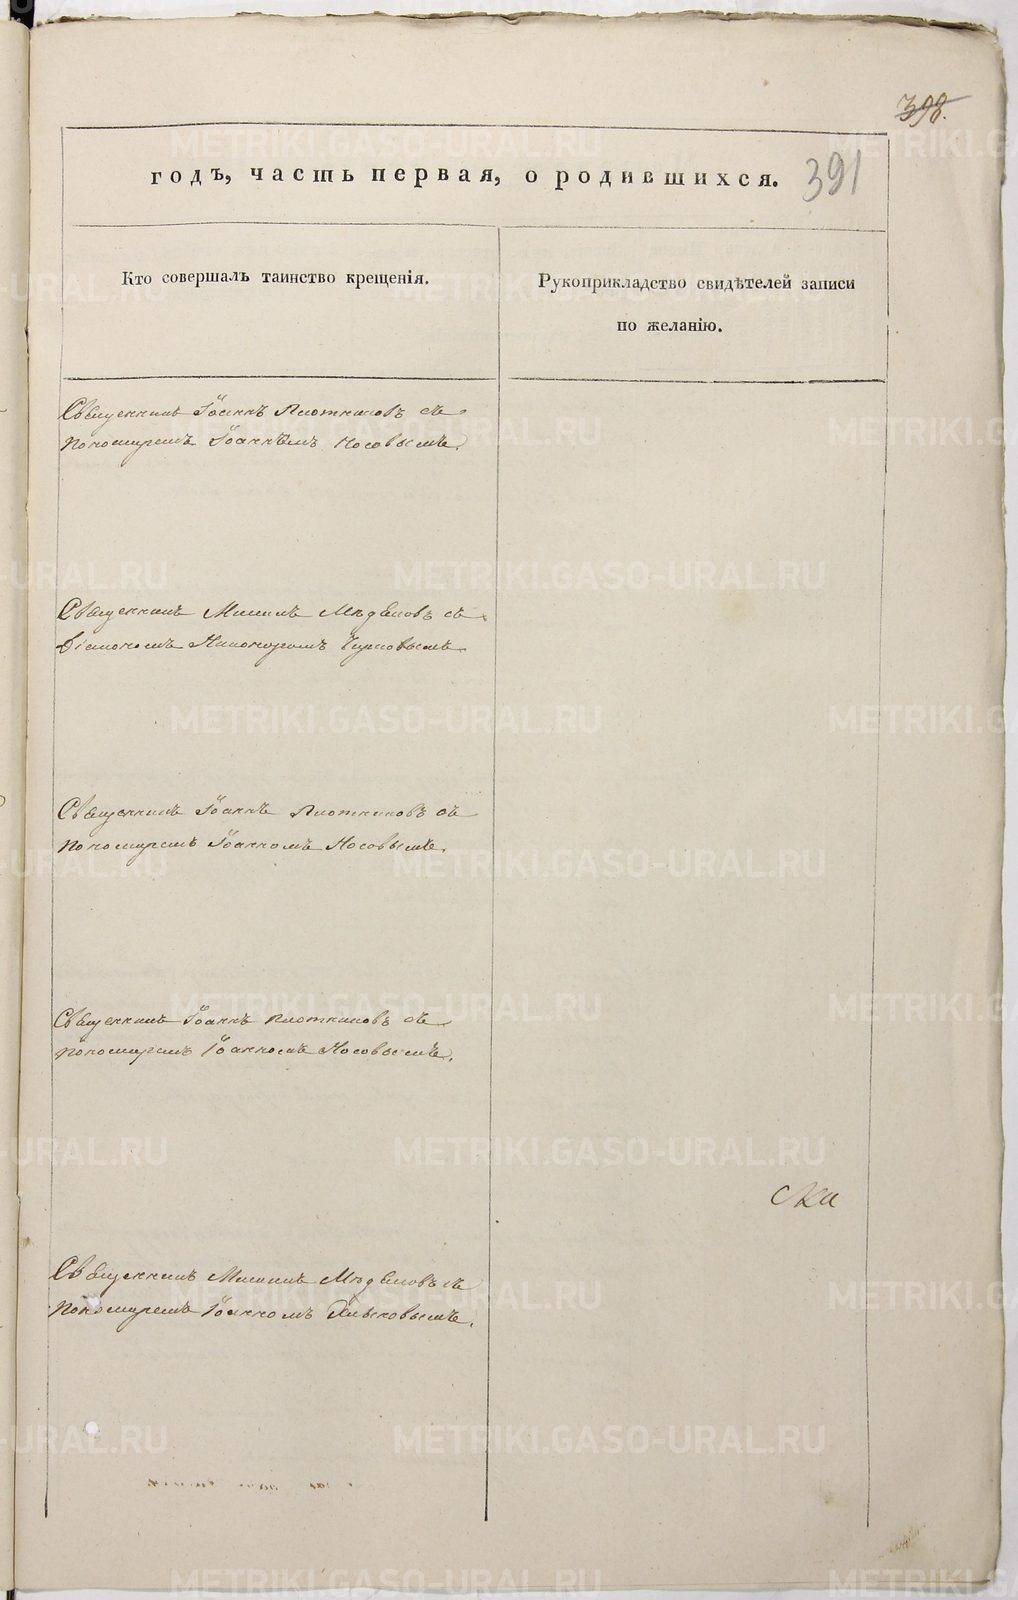 398.
391
годъ, часть первая, о родившихся.
Кто совершалъ таинство крещенія.
Рукоприкладство свидѣтелей записи
по желанію.
Священникъ Іоаннъ Плотниковъ съ
Пономаремъ Іоанномъ Носовымъ.
Священникъ Михаилъ съ
Діакономъ Никаноромъ
Священникъ Іоаннъ Плотниковъ съ
Пономаремъ Іоанномъ Носовымъ.
Священникъ Іоаннъ Плотниковъ съ
Пономаремъ Іоанномъ Носовымъ.
Священникъ Михаилъ съ
Пономаремъ Іоанномъ
METRIKI.GASO-URAL.RU